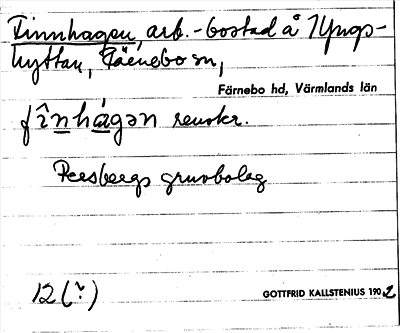 Finnhagen, arb.-bostad å Yngs-
hyttan, Färnebo sn,
Färnebo hd, Värmlands län
fînhágǝn
Persbergs gruvbolag
12(?)
GOTTFRID KALLSTENIUS 1902